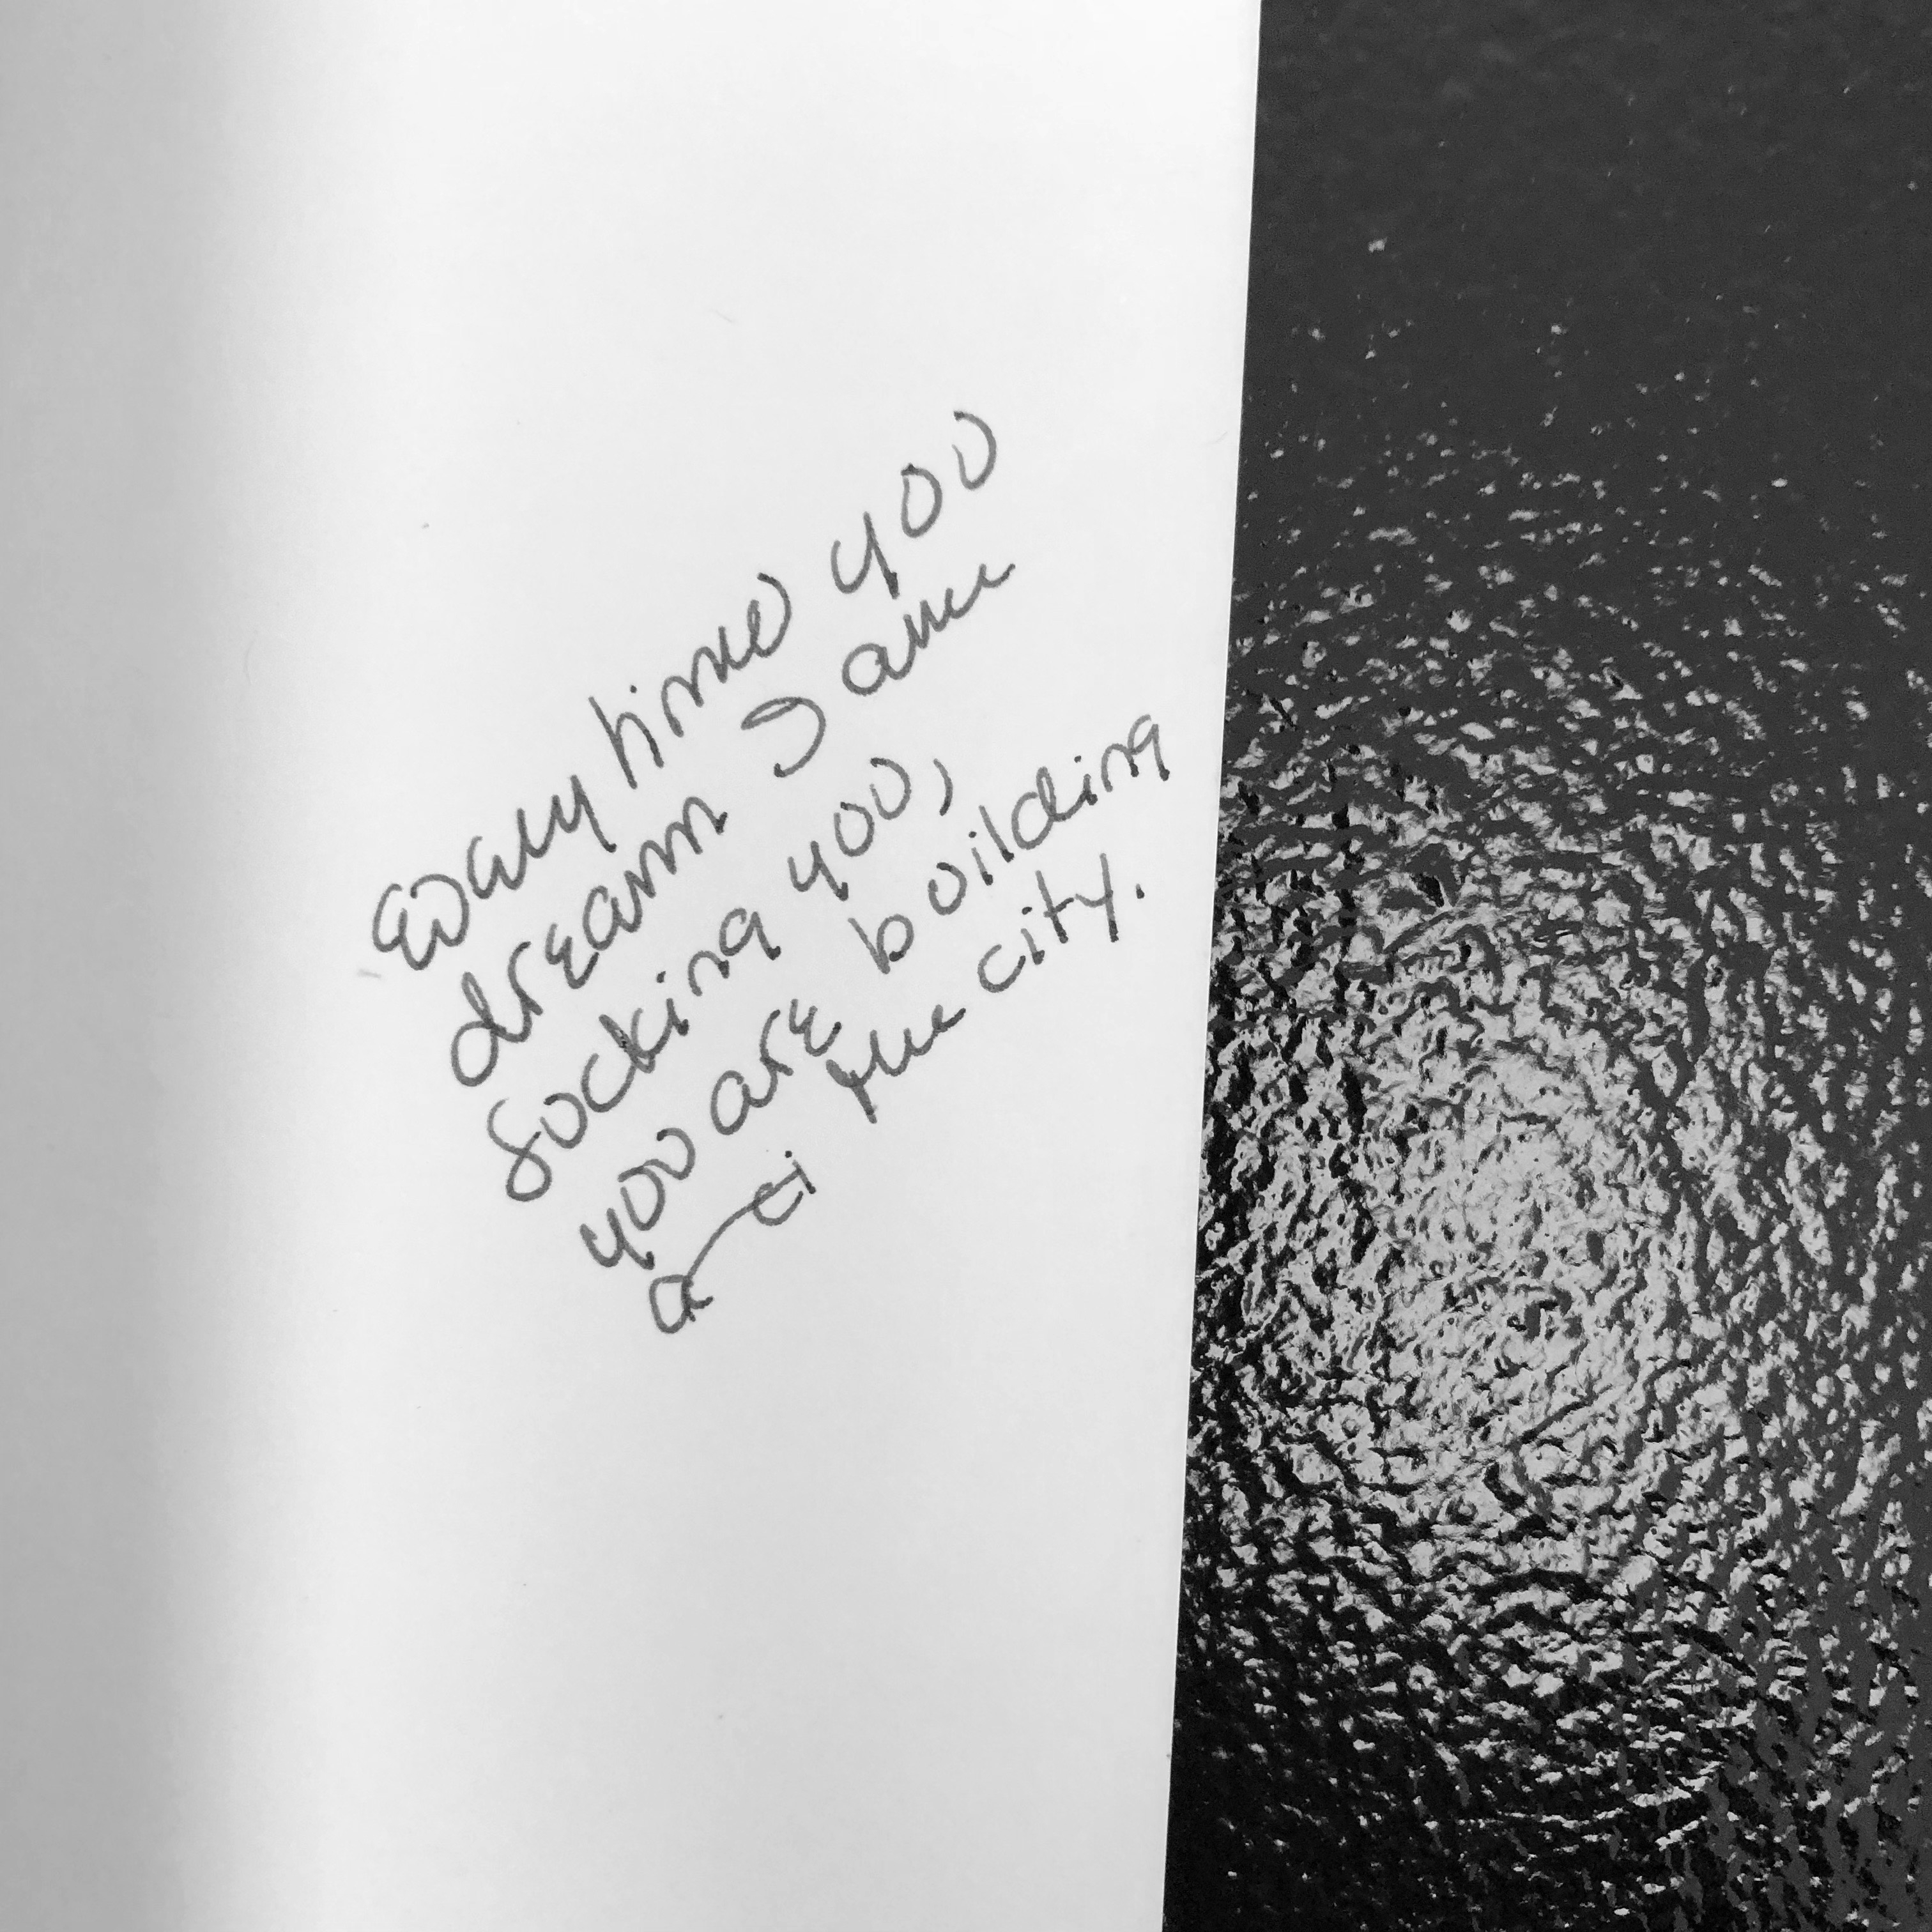 every time you
dream I am
fucking you,
you are building
a ci the city.